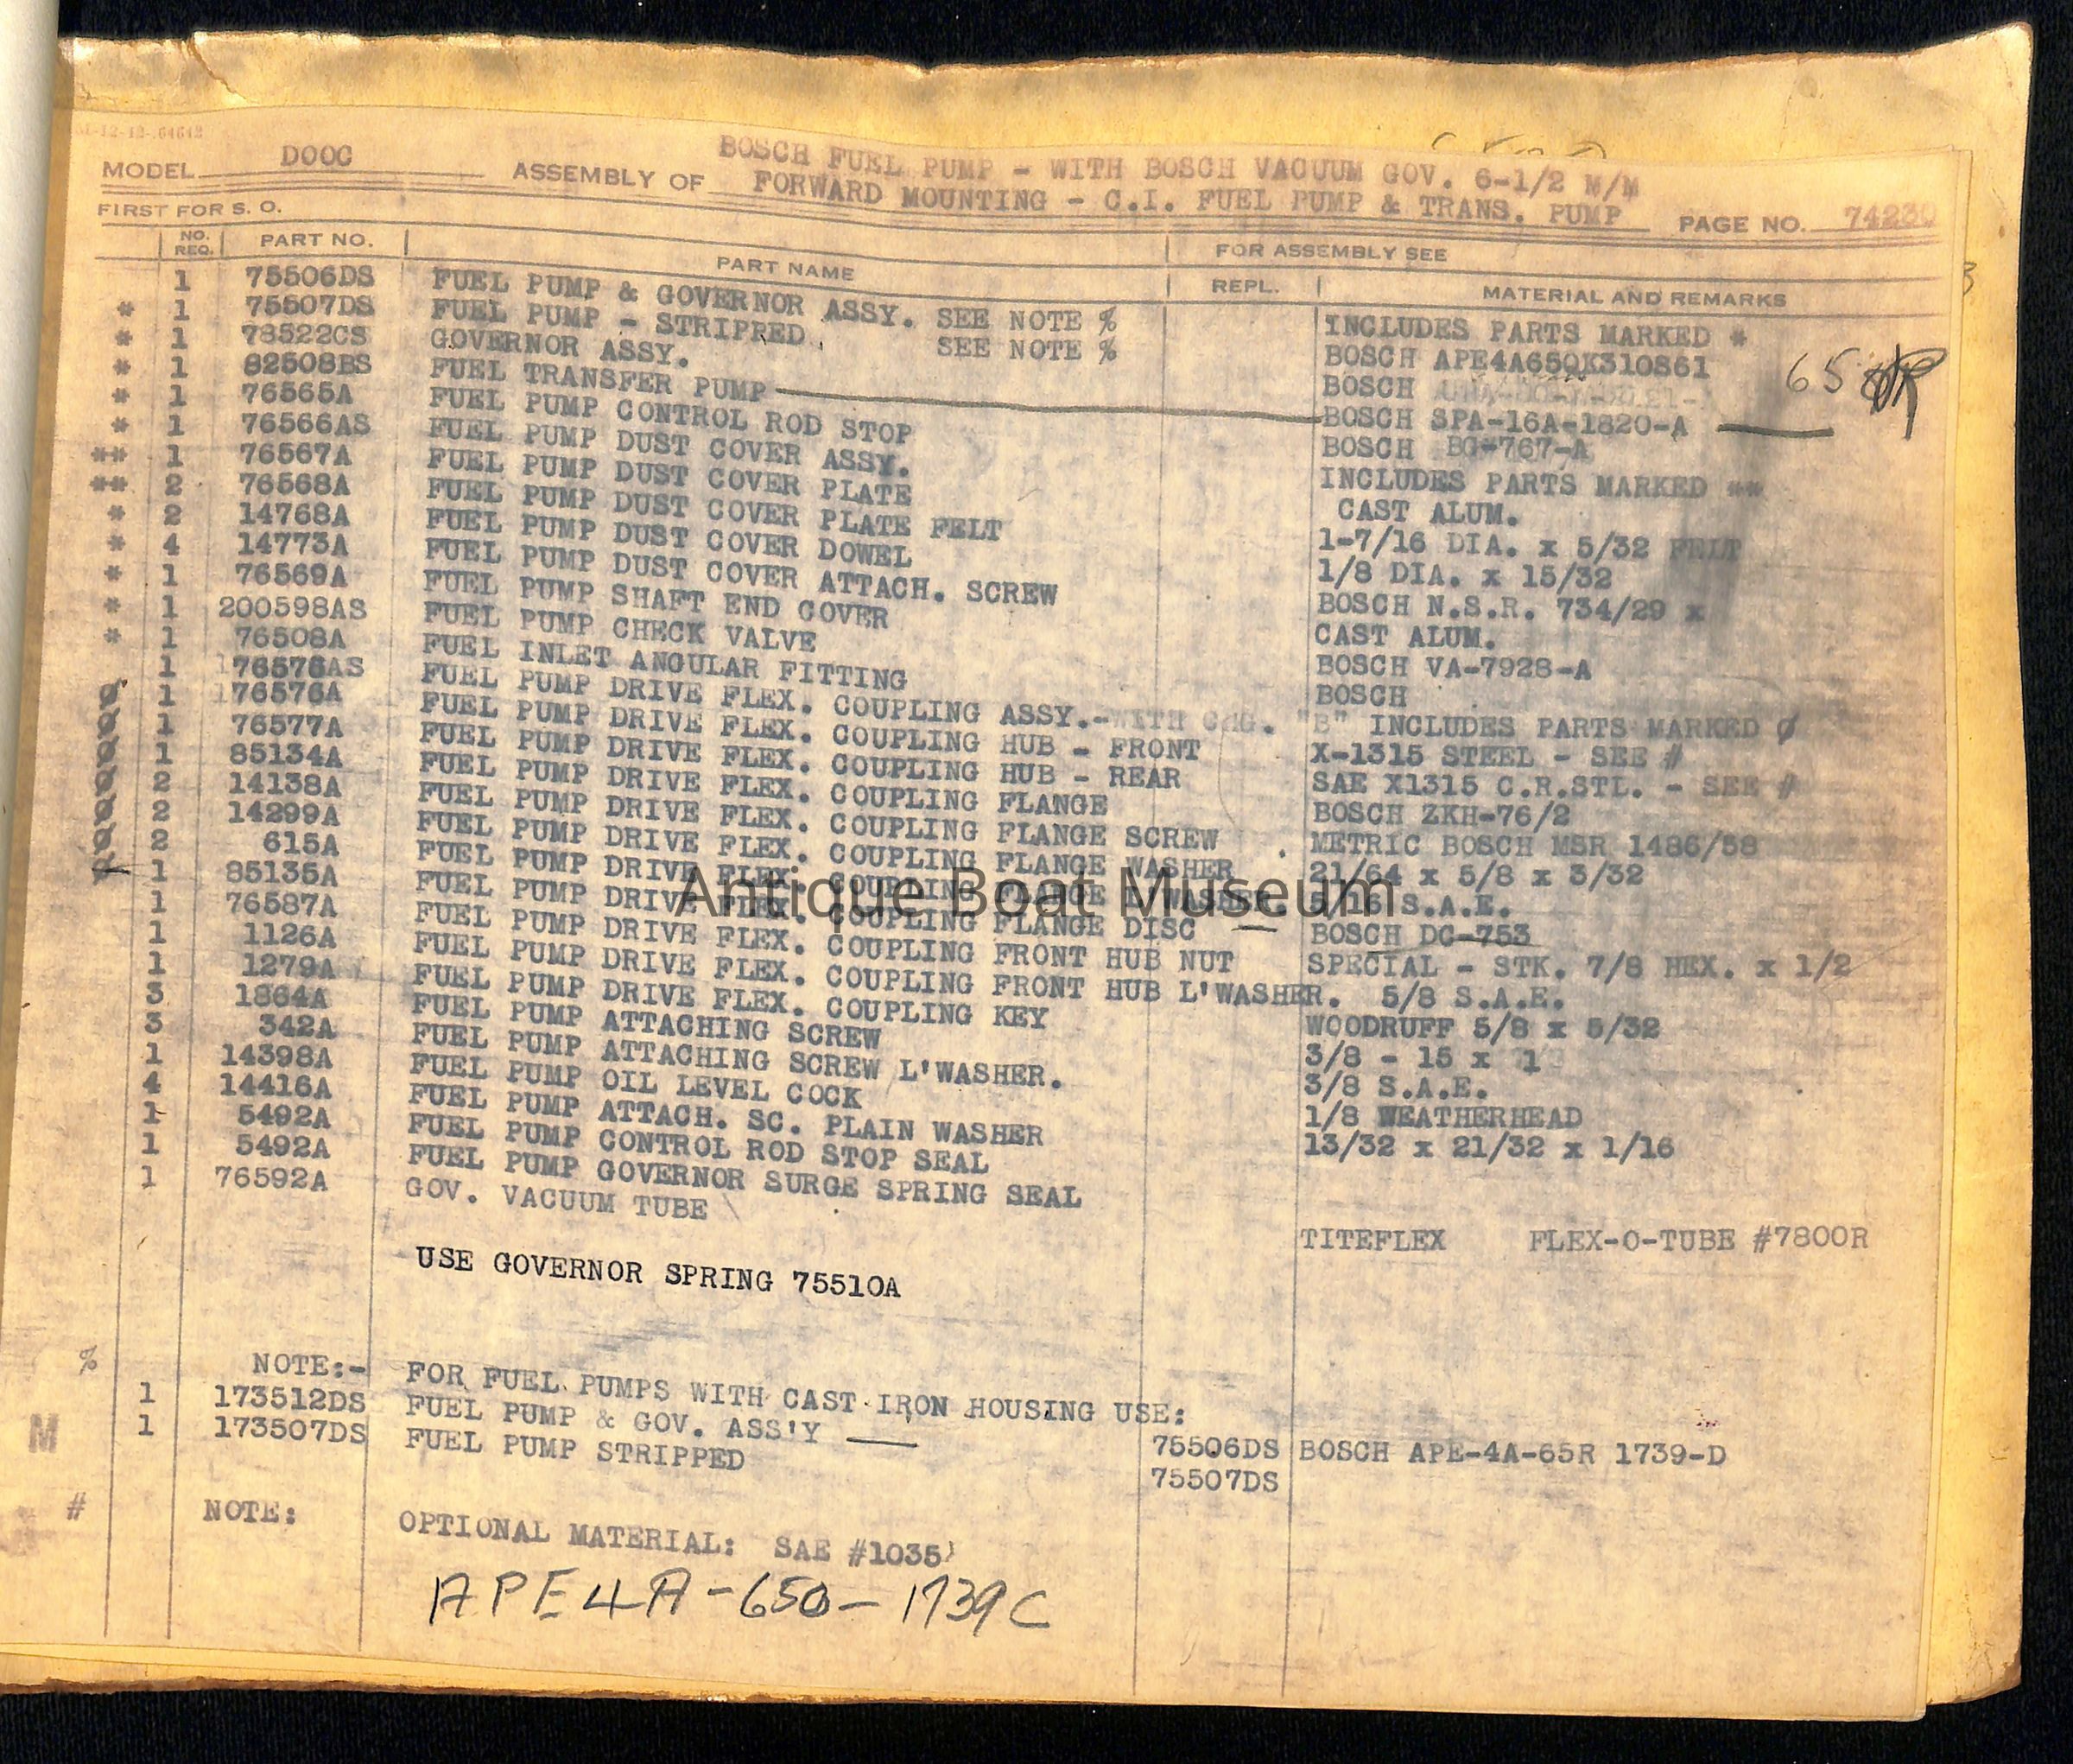 MODEL DOOC ASSEMBLY OF BOSCH FUEL PUMP - WITH BOSCH VACUUM GOV. 6-1/2 M/M
FORWARD MOUNTING - C.I. FUEL PUMP & TRANS. PUMP PAGE NO. 74230
FIRST FOR S. O.
NO. REQ. PART NO. PART NAME FOR ASSEMBLY SEE
REPL. MATERIAL AND REMARKS
1 75506DS FUEL PUMP & GOVERNOR ASSY. SEE NOTE % INCLUDES PARTS MARKED *
* 1 75507DS FUEL PUMP - STRIPPED SEE NOTE % BOSCH APE4A65QK310S61 65 R
* 1 78522CS GOVERNOR ASSY. BOSCH
* 1 82508BS FUEL TRANSFER PUMP BOSCH SPA-16A-1820-A
* 1 76565A FUEL PUMP CONTROL ROD STOP BOSCH BG-767-A
* 1 76566AS FUEL PUMP DUST COVER ASSY. INCLUDES PARTS MARKED **
** 1 76567A FUEL PUMP DUST COVER PLATE CAST ALUM.
** 2 76568A FUEL PUMP DUST COVER PLATE FELT 1-7/16 DIA. x 5/32 FELT
* 2 14768A FUEL PUMP DUST COVER DOWEL 1/8 DIA. x 15/32
* 4 14773A FUEL PUMP DUST COVER ATTACH. SCREW BOSCH N.S.R. 734/29 x
* 1 76569A FUEL PUMP SHAFT END COVER CAST ALUM.
* 1 200598AS FUEL PUMP CHECK VALVE BOSCH VA-7928-A
* 1 76508A FUEL INLET ANGULAR FITTING BOSCH
1 76576AS FUEL PUMP DRIVE FLEX. COUPLING ASSY.-WITH CHG. "B" INCLUDES PARTS MARKED Ø
Ø 1 76576A FUEL PUMP DRIVE FLEX. COUPLING HUB - FRONT X-1315 STEEL - SEE #
Ø 1 76577A FUEL PUMP DRIVE FLEX. COUPLING HUB - REAR SAE X1315 C.R.STL. - SEE #
Ø 1 85134A FUEL PUMP DRIVE FLEX. COUPLING FLANGE BOSCH ZKH-76/2
Ø 2 14138A FUEL PUMP DRIVE FLEX. COUPLING FLANGE SCREW METRIC BOSCH MSR 1486/58
Ø 2 14299A FUEL PUMP DRIVE FLEX. COUPLING FLANGE WASHER 21/64 x 5/8 x 3/32
Ø 2 615A FUEL PUMP DRIVE FLEX. COUPLING FLANGE L'WASHER 5/16 S.A.E.
Ø 1 85135A FUEL PUMP DRIVE FLEX. COUPLING FLANGE DISC BOSCH DC-753
1 76587A FUEL PUMP DRIVE FLEX. COUPLING FRONT HUB NUT SPECIAL - STK. 7/8 HEX. x 1/2
1 1126A FUEL PUMP DRIVE FLEX. COUPLING FRONT HUB L'WASHER. 5/8 S.A.E.
1 1279A FUEL PUMP DRIVE FLEX. COUPLING KEY WOODRUFF 5/8 x 5/32
3 1864A FUEL PUMP ATTACHING SCREW 3/8 - 15 x 1
3 342A FUEL PUMP ATTACHING SCREW L'WASHER. 3/8 S.A.E.
1 14398A FUEL PUMP OIL LEVEL COCK 1/8 WEATHERHEAD
4 14416A FUEL PUMP ATTACH. SC. PLAIN WASHER 13/32 x 21/32 x 1/16
1 5492A FUEL PUMP CONTROL ROD STOP SEAL
1 5492A FUEL PUMP GOVERNOR SURGE SPRING SEAL
1 76592A GOV. VACUUM TUBE TITEFLEX FLEX-O-TUBE #7800R
Antique Boat Museum
USE GOVERNOR SPRING 75510A
% NOTE:- FOR FUEL PUMPS WITH CAST IRON HOUSING USE:
1 173512DS FUEL PUMP & GOV. ASS'Y 75506DS BOSCH APE-4A-65R 1739-D
M 1 173507DS FUEL PUMP STRIPPED 75507DS
# NOTE: OPTIONAL MATERIAL: SAE #1035
APE4A-650-1739C